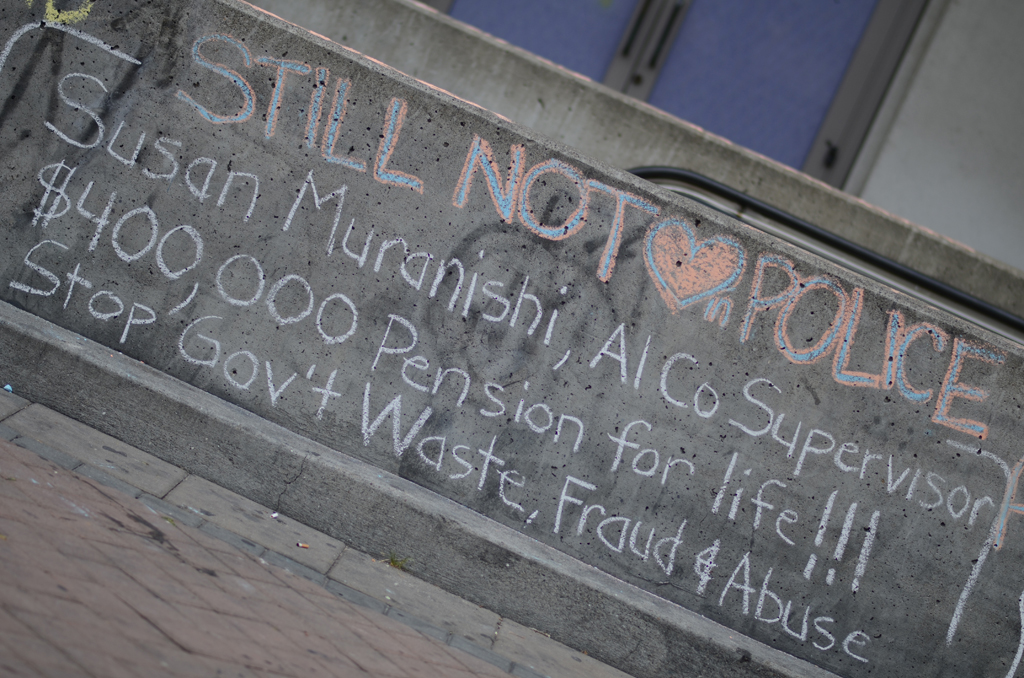 STILL NOT ♥in POLICE
Susan Muranishi, Al Co Supervisor
$400,000 Pension for life!!!
Stop Gov't Waste, Fraud & Abuse